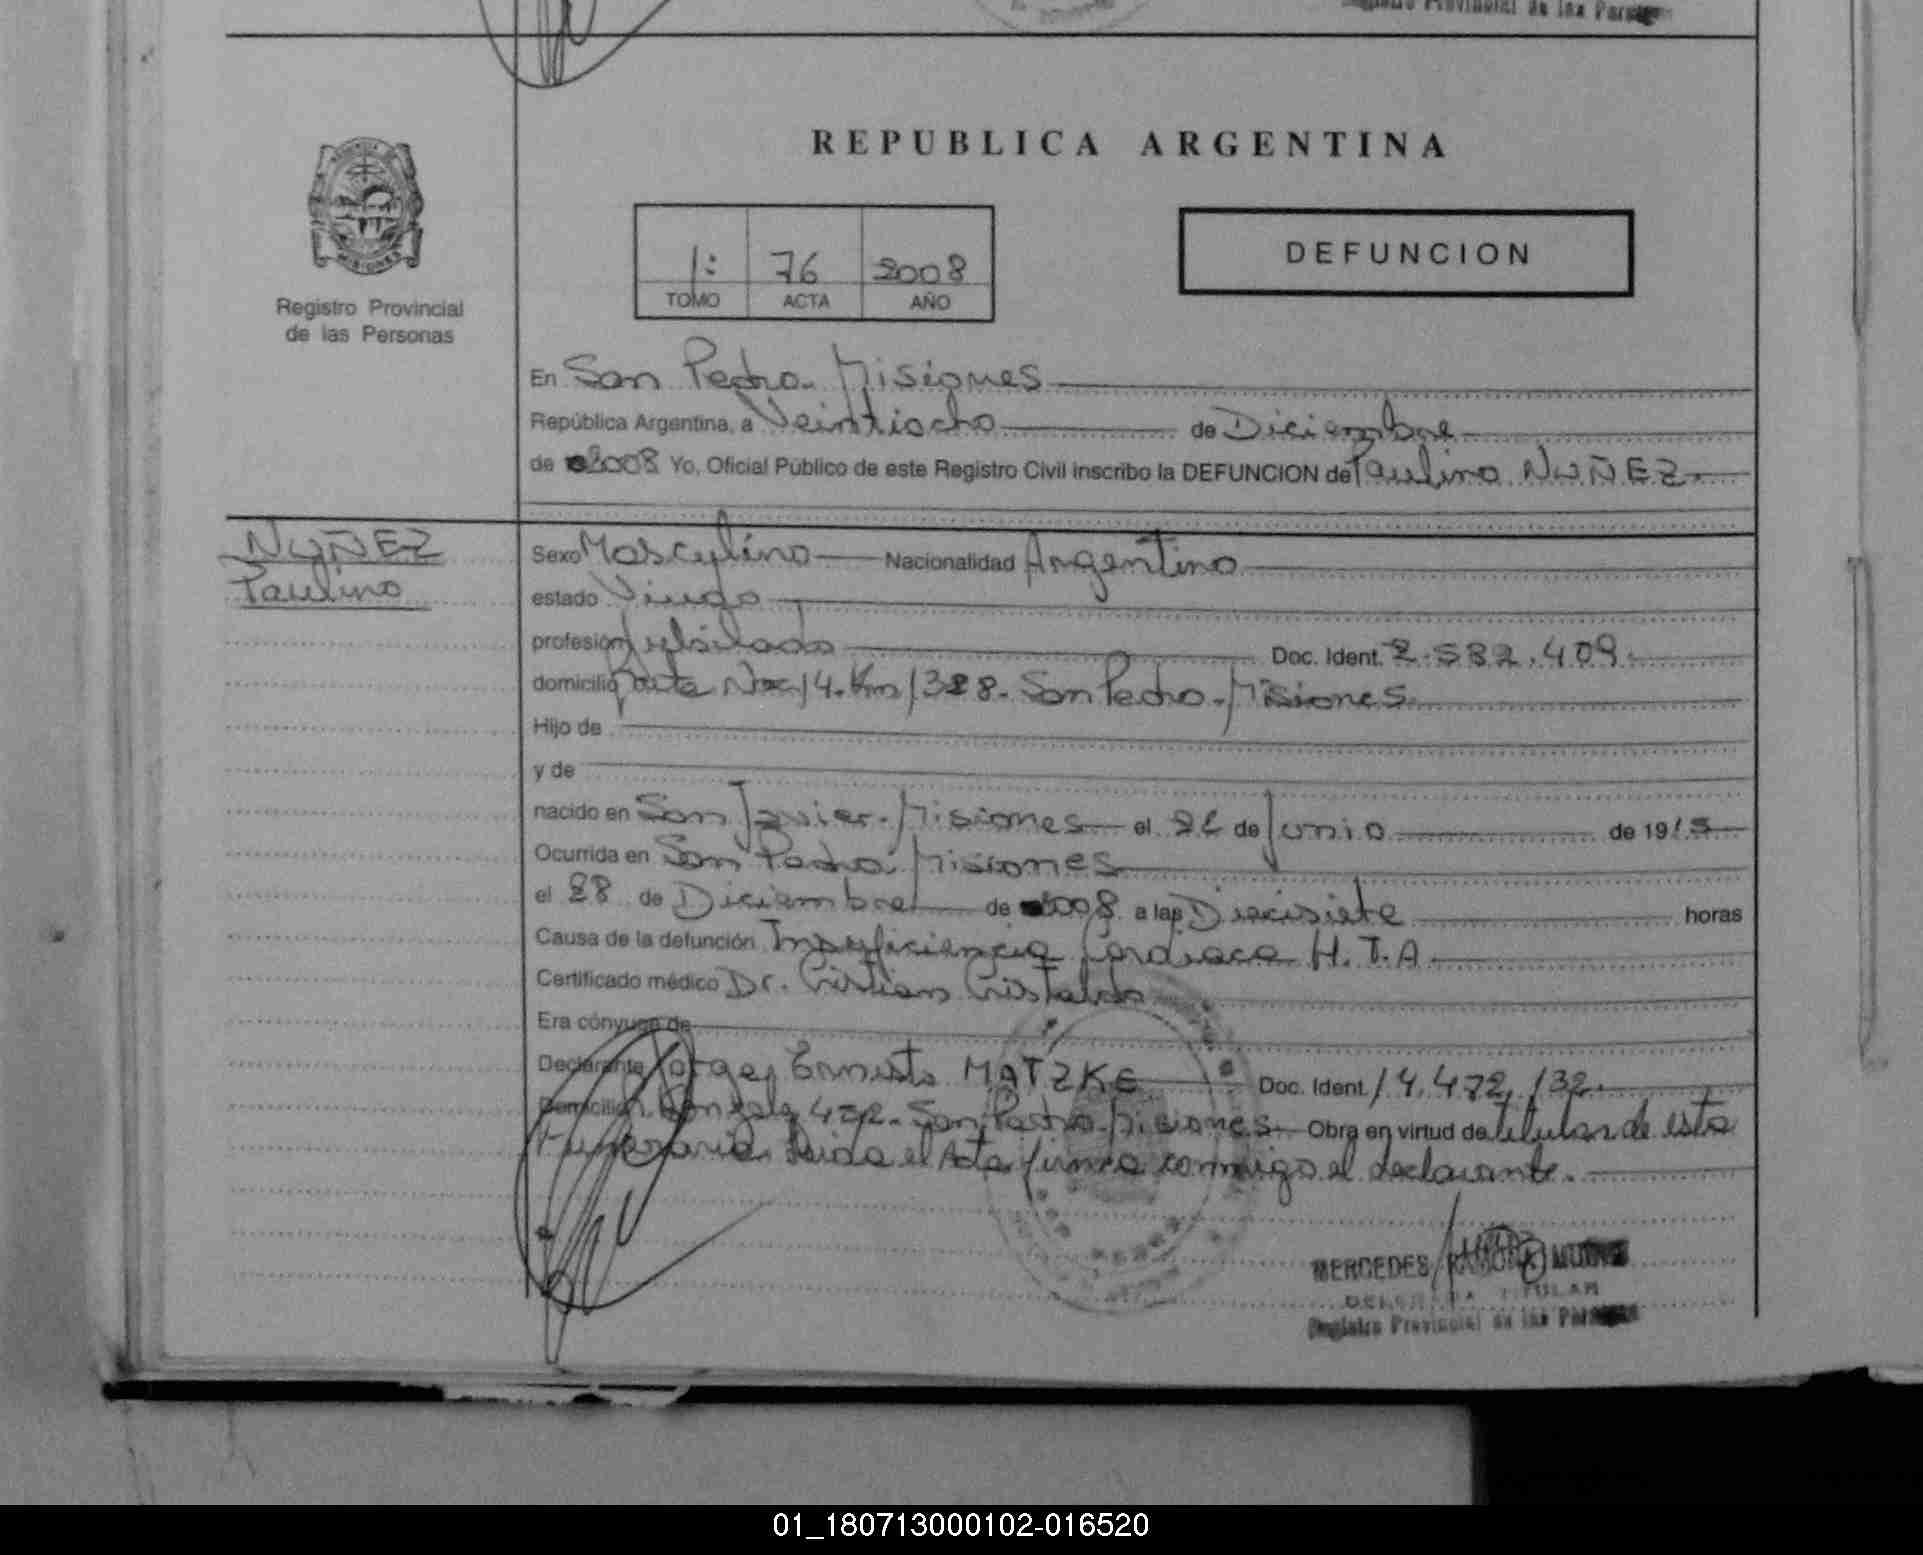 Registro Provincial de las Personas
REPUBLICA ARGENTINA
1: 76 2008
TOMO ACTA AÑO
DEFUNCION
MISIONES
Registro Provincial
de las Personas
En San Pedro. Misiones
República Argentina, a Veintiocho de Diciembre
de 2008 Yo, Oficial Público de este Registro Civil inscribo la DEFUNCION de Paulino NUÑEZ.
NUÑEZ
Paulino
Sexo Masculino Nacionalidad Argentino
estado Viudo
profesión Jubilado Doc. Ident. 2.582.409.
domicilio Ruta Nac 14. Km 1328. San Pedro. Misiones
Hijo de
y de
nacido en San Javier. Misiones el 22 de Junio de 1915
Ocurrida en San Pedro. Misiones
el 28 de Diciembre de 2008 a las Diecisiete horas
Causa de la defunción Insuficiencia Cardiaca H.T.A
Certificado médico Dr. Cristian Cristaldo
Era cónyuge de
Declarante Jorge Ernesto MATZKE Doc. Ident. 14.472.132.
Domicilio San Pedro. Misiones Obra en virtud de titular de esta
Funeraria. Leida el Acta firma conmigo el declarante.
MERCEDES RAMONA
DELEGADA TITULAR
Registro Provincial de las Personas
01_180713000102-016520